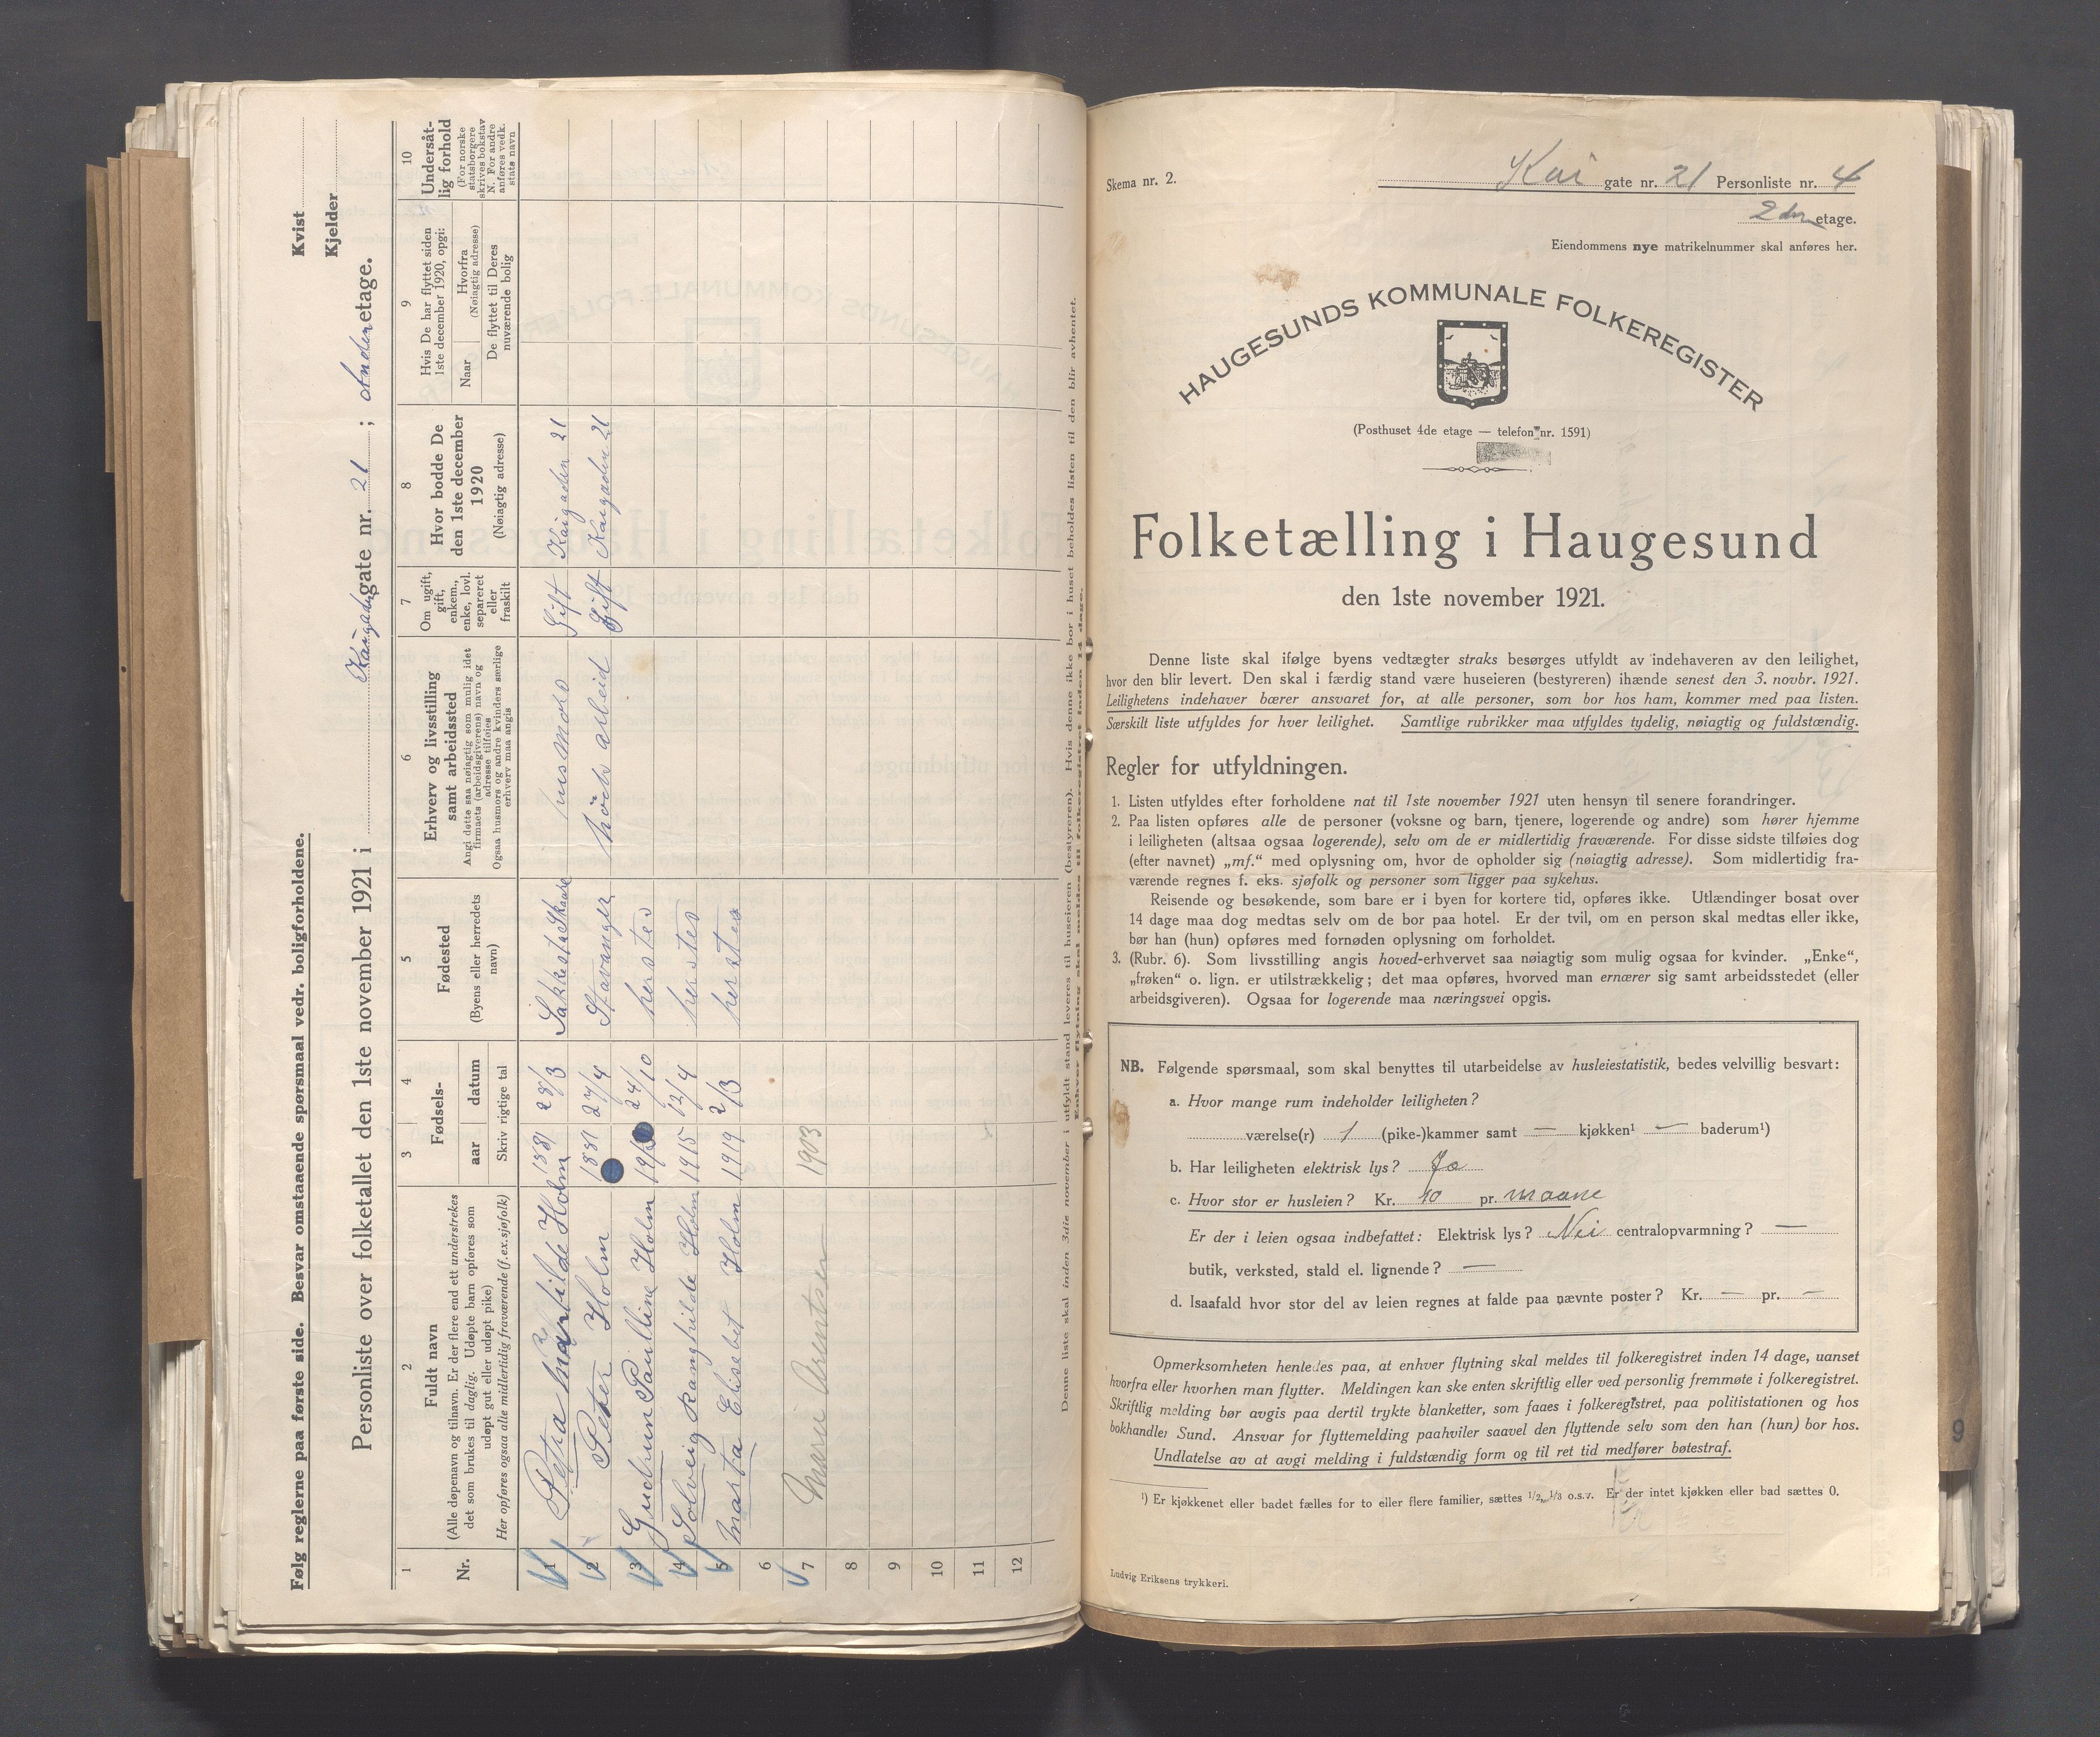 Følg reglerne paa første side. Besvar omstaaende spørsmaal vedr. boligforholdene.
Kvist
Kjelder
Personliste over folketallet den 1ste november 1921 i Kaigaden gate nr. 21 ; Anden etage.
1
Nr.
2
Fuldt navn
(Alle døpenavn og tilnavn. Er der flere end ett understrekes
det som brukes til daglig. Udøpte barn opføres som
udøpt gut eller udøpt pike)
Her opføres ogsaa alle midlertidig fraværende (f.ex. sjøfolk)
3 4
Fødsels-
aar datum
Skriv rigtige tal
5
Fødested
(Byens eller herredets
navn)
6
Erhverv og livsstilling
samt arbeidssted
Angi dette saa nøiagtig som mulig idet
firmaets (arbeidsgiverens) navn og
adresse tilføies
Ogsaa husmors og andre kvinders særlige
erhverv maa angis
7
Om ugift,
gift,
enkem.,
enke, lovl.
separeret
eller
fraskilt
8
Hvor bodde De
den 1ste december
1920
(Nøiagtig adresse)
9
Hvis De har flyttet siden
1ste december 1920, opgi:
Naar
Hvorfra
(Nøiagtig adresse)
De flyttet til Deres
nuværende bolig
10
Undersåt-
lig forhold
(For norske
statsborgere
skrives bokstav
N. For andre
anføres vedk.
stats navn
1 Petra Matilde Holm 1881 28/3 Skaare husmor Gift Kaigaden 21
2 Peter Holm 1881 27/4 Stavanger arbeid Gift Kaigaden 21
3 Gudrun Paulline Holm 24/10 hersted
4 Solveig Ranghilde Holm 1915 12/4 hersted
5 Marta Elisebet Holm 1919 2/3 hersted
6
7 Marie Arentsen 1903
8
9
10
11
12
Denne liste skal inden 3die november i utfyldt stand leveres til huseieren (bestyreren). Hvis denne ikke bor i huset beholdes listen til den blir avhentet.
Enhver flytning skal meldes til folkeregistret inden 14 dage.
Skema nr. 2.
Kai gate nr. 21 Personliste nr. 4
2den etage.
Eiendommens nye matrikelnummer skal anføres her.
HAUGESUNDS KOMMUNALE FOLKEREGISTER
(Posthuset 4de etage — telefon nr. 1591)
Folketælling i Haugesund
den 1ste november 1921.
Denne liste skal ifølge byens vedtægter straks besørges utfyldt av indehaveren av den leilighet,
hvor den blir levert. Den skal i færdig stand være huseieren (bestyreren) ihænde senest den 3. novbr. 1921.
Leilighetens indehaver bærer ansvaret for, at alle personer, som bor hos ham, kommer med paa listen.
Særskilt liste utfyldes for hver leilighet. Samtlige rubrikker maa utfyldes tydelig, nøiagtig og fuldstændig.
Regler for utfyldningen.
1. Listen utfyldes efter forholdene nat til 1ste november 1921 uten hensyn til senere forandringer.
2. Paa listen opføres alle de personer (voksne og barn, tjenere, logerende og andre) som hører hjemme
i leiligheten (altsaa ogsaa logerende), selv om de er midlertidig fraværende. For disse sidste tilføies dog
(efter navnet) „mf.“ med oplysning om, hvor de opholder sig (nøiagtig adresse). Som midlertidig fra-
værende regnes f. eks. sjøfolk og personer som ligger paa sykehus.
Reisende og besøkende, som bare er i byen for kortere tid, opføres ikke. Utlændinger bosat over
14 dage maa dog medtas selv om de bor paa hotel. Er der tvil, om en person skal medtas eller ikke,
bør han (hun) opføres med fornøden oplysning om forholdet.
3. (Rubr. 6). Som livsstilling angis hoved-erhvervet saa nøiagtig som mulig ogsaa for kvinder. „Enke“,
„frøken“ o. lign. er utilstrækkelig; det maa opføres, hvorved man ernærer sig samt arbeidsstedet (eller
arbeidsgiveren). Ogsaa for logerende maa næringsvei opgis.
NB. Følgende spørsmaal, som skal benyttes til utarbeidelse av husleiestatistik, bedes velvillig besvart:
a. Hvor mange rum indeholder leiligheten?
værelse(r) 1 (pike-)kammer samt — kjøkken¹ — baderum¹)
b. Har leiligheten elektrisk lys? Ja
c. Hvor stor er husleien? Kr. 10 pr. maane
Er der i leien ogsaa indbefattet: Elektrisk lys? Nei centralopvarmning? —
butik, verksted, stald el. lignende? —
d. Isaafald hvor stor del av leien regnes at falde paa nævnte poster? Kr. — pr. —
Opmerksomheten henledes paa, at enhver flytning skal meldes til folkeregistret inden 14 dage, uanset
hvorfra eller hvorhen man flytter. Meldingen kan ske enten skriftlig eller ved personlig fremmøte i folkeregistret.
Skriftlig melding bør avgis paa dertil trykte blanketter, som faaes i folkeregistret, paa politistationen og hos
bokhandler Sund. Ansvar for flyttemelding paahviler saavel den flyttende selv som den han (hun) bor hos.
Undlatelse av at avgi melding i fuldstændig form og til ret tid medfører bøtestraf.
¹) Er kjøkkenet eller badet fælles for to eller flere familier, sættes 1/2, 1/3 o.s.v. Er der intet kjøkken eller bad sættes 0.
Ludvig Eriksens trykkeri.
9